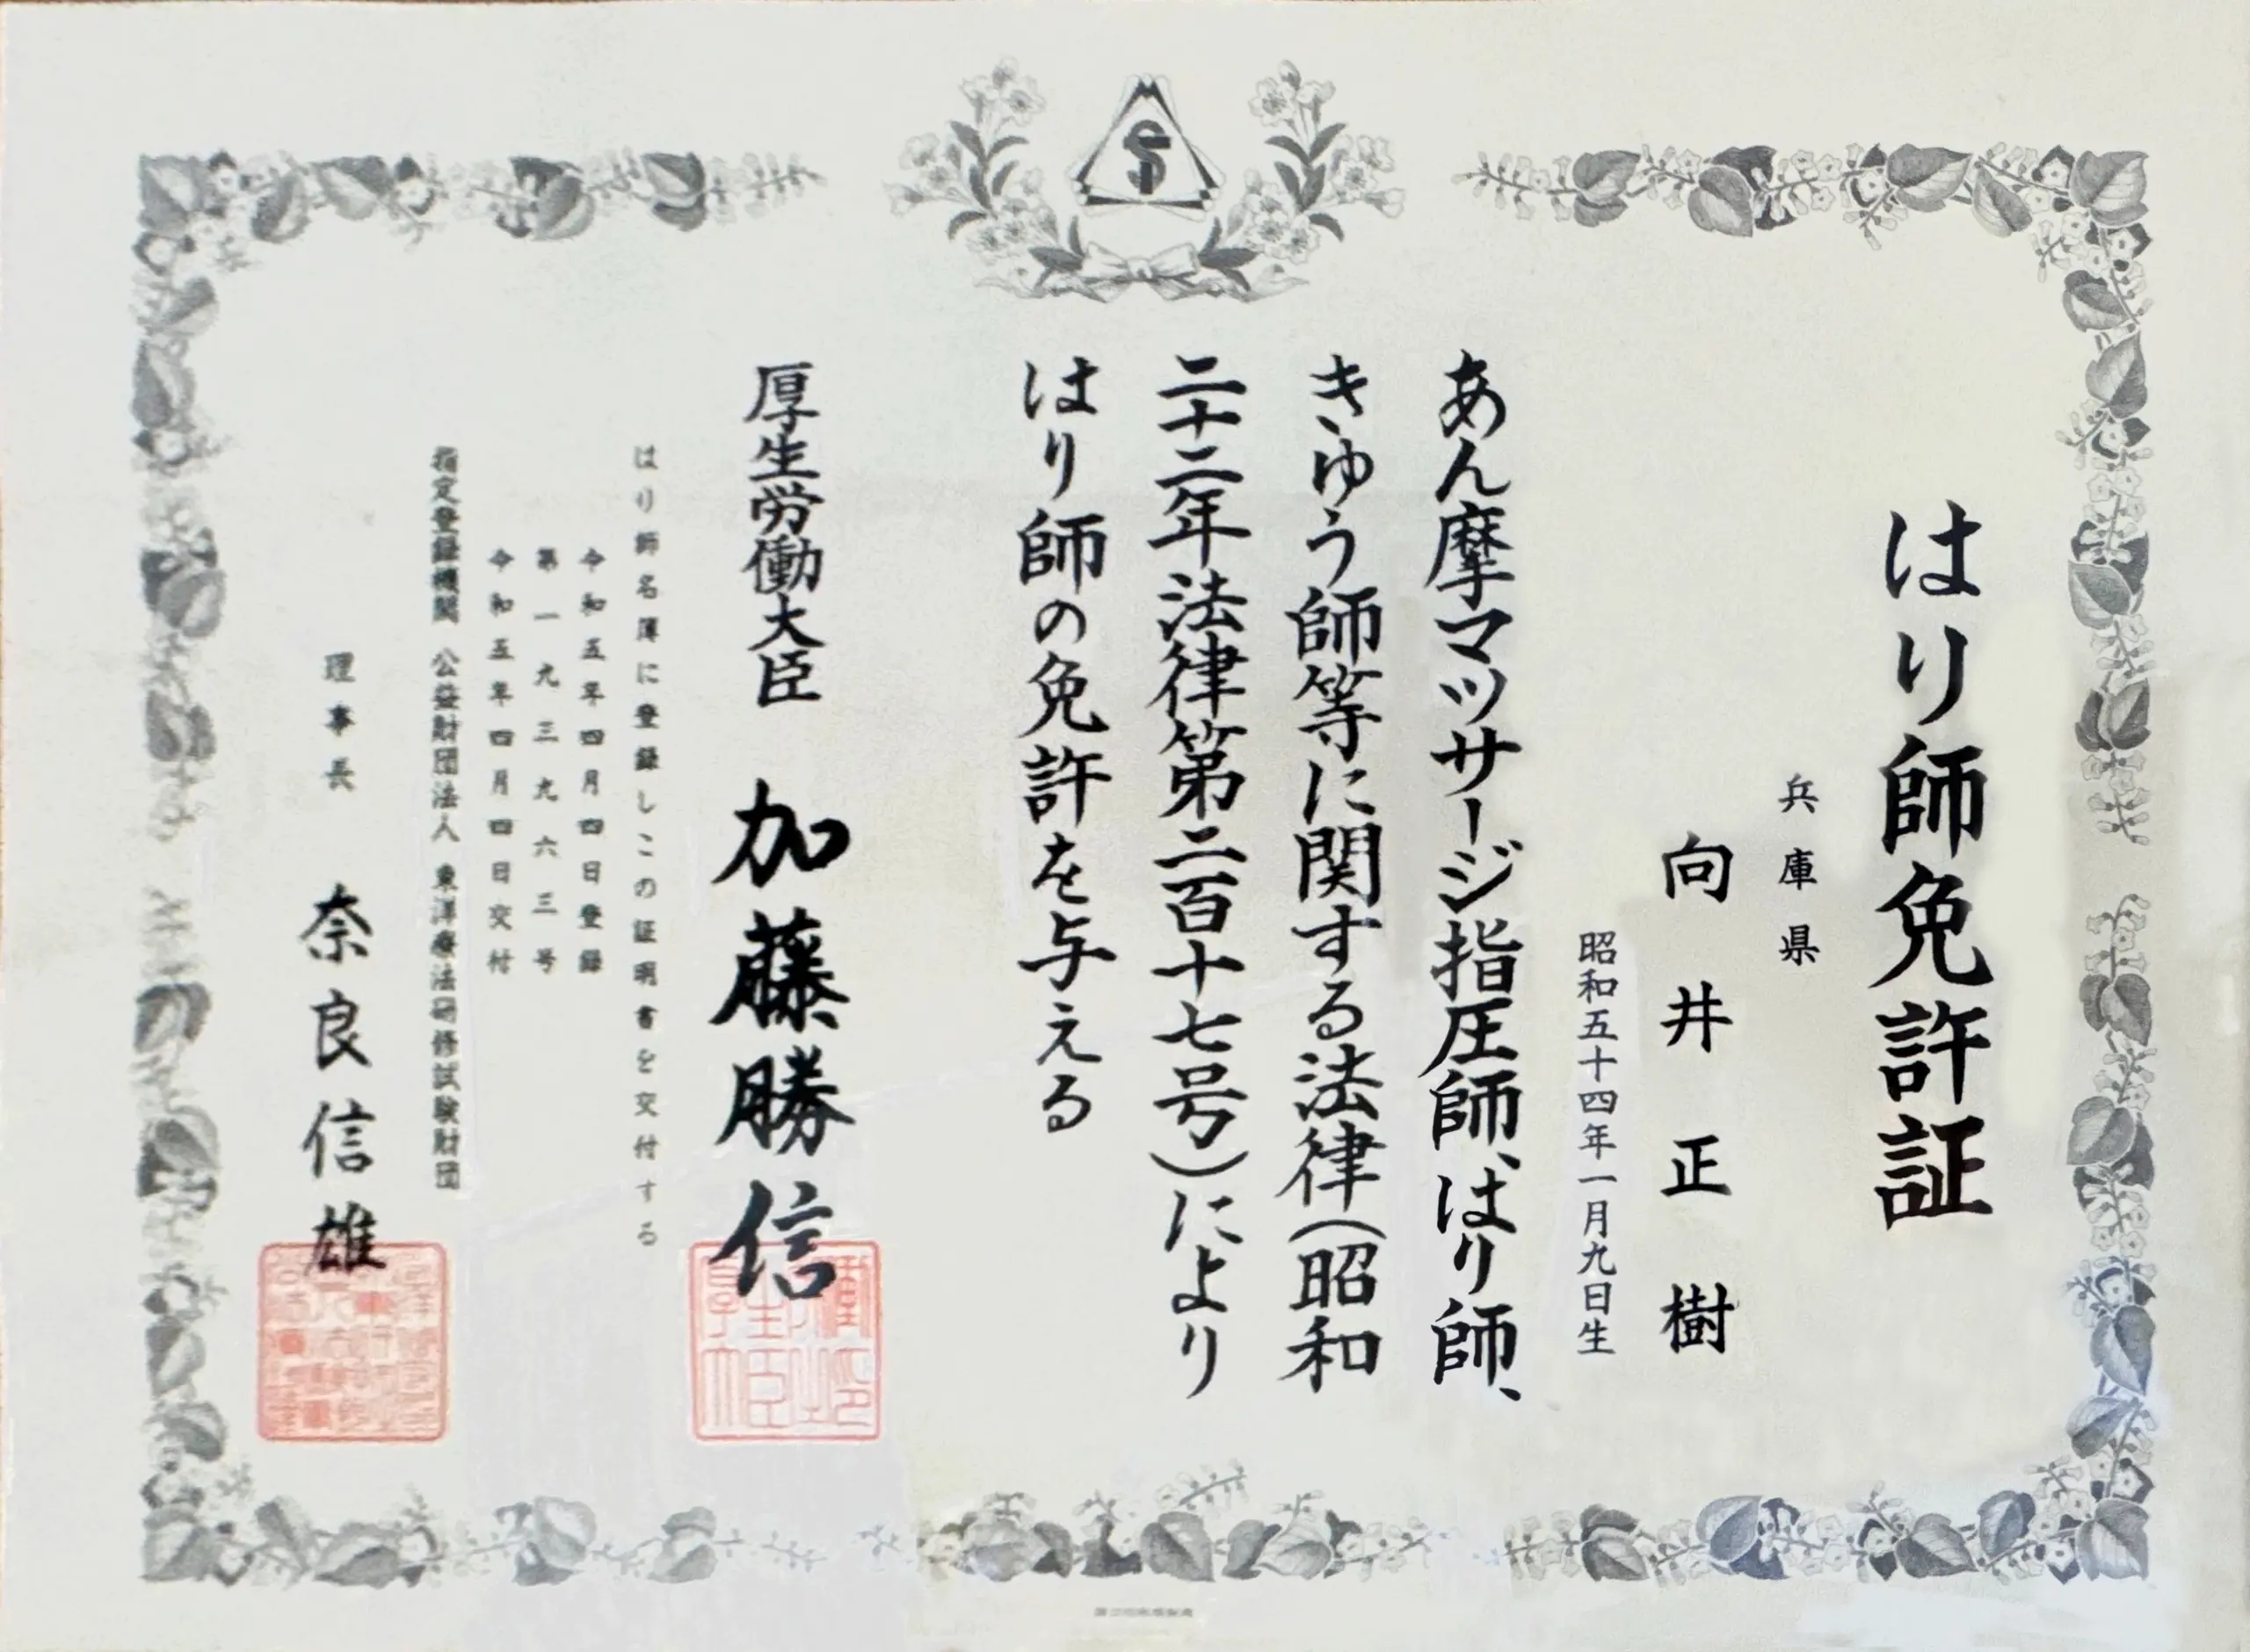 はり師免許証
兵庫県
向井正樹
昭和五十四年一月九日生
あん摩マツサージ指圧師、はり師、
きゆう師等に関する法律(昭和
二十二年法律第二百十七号)により
はり師の免許を与える
厚生労働大臣 加藤勝信
はり師名簿に登録しこの証明書を交付する
令和五年四月四日登録
第一九三九六三号
令和五年四月四日交付
指定登録機関 公益財団法人 東洋療法研修試験財団
理事長 奈良信雄